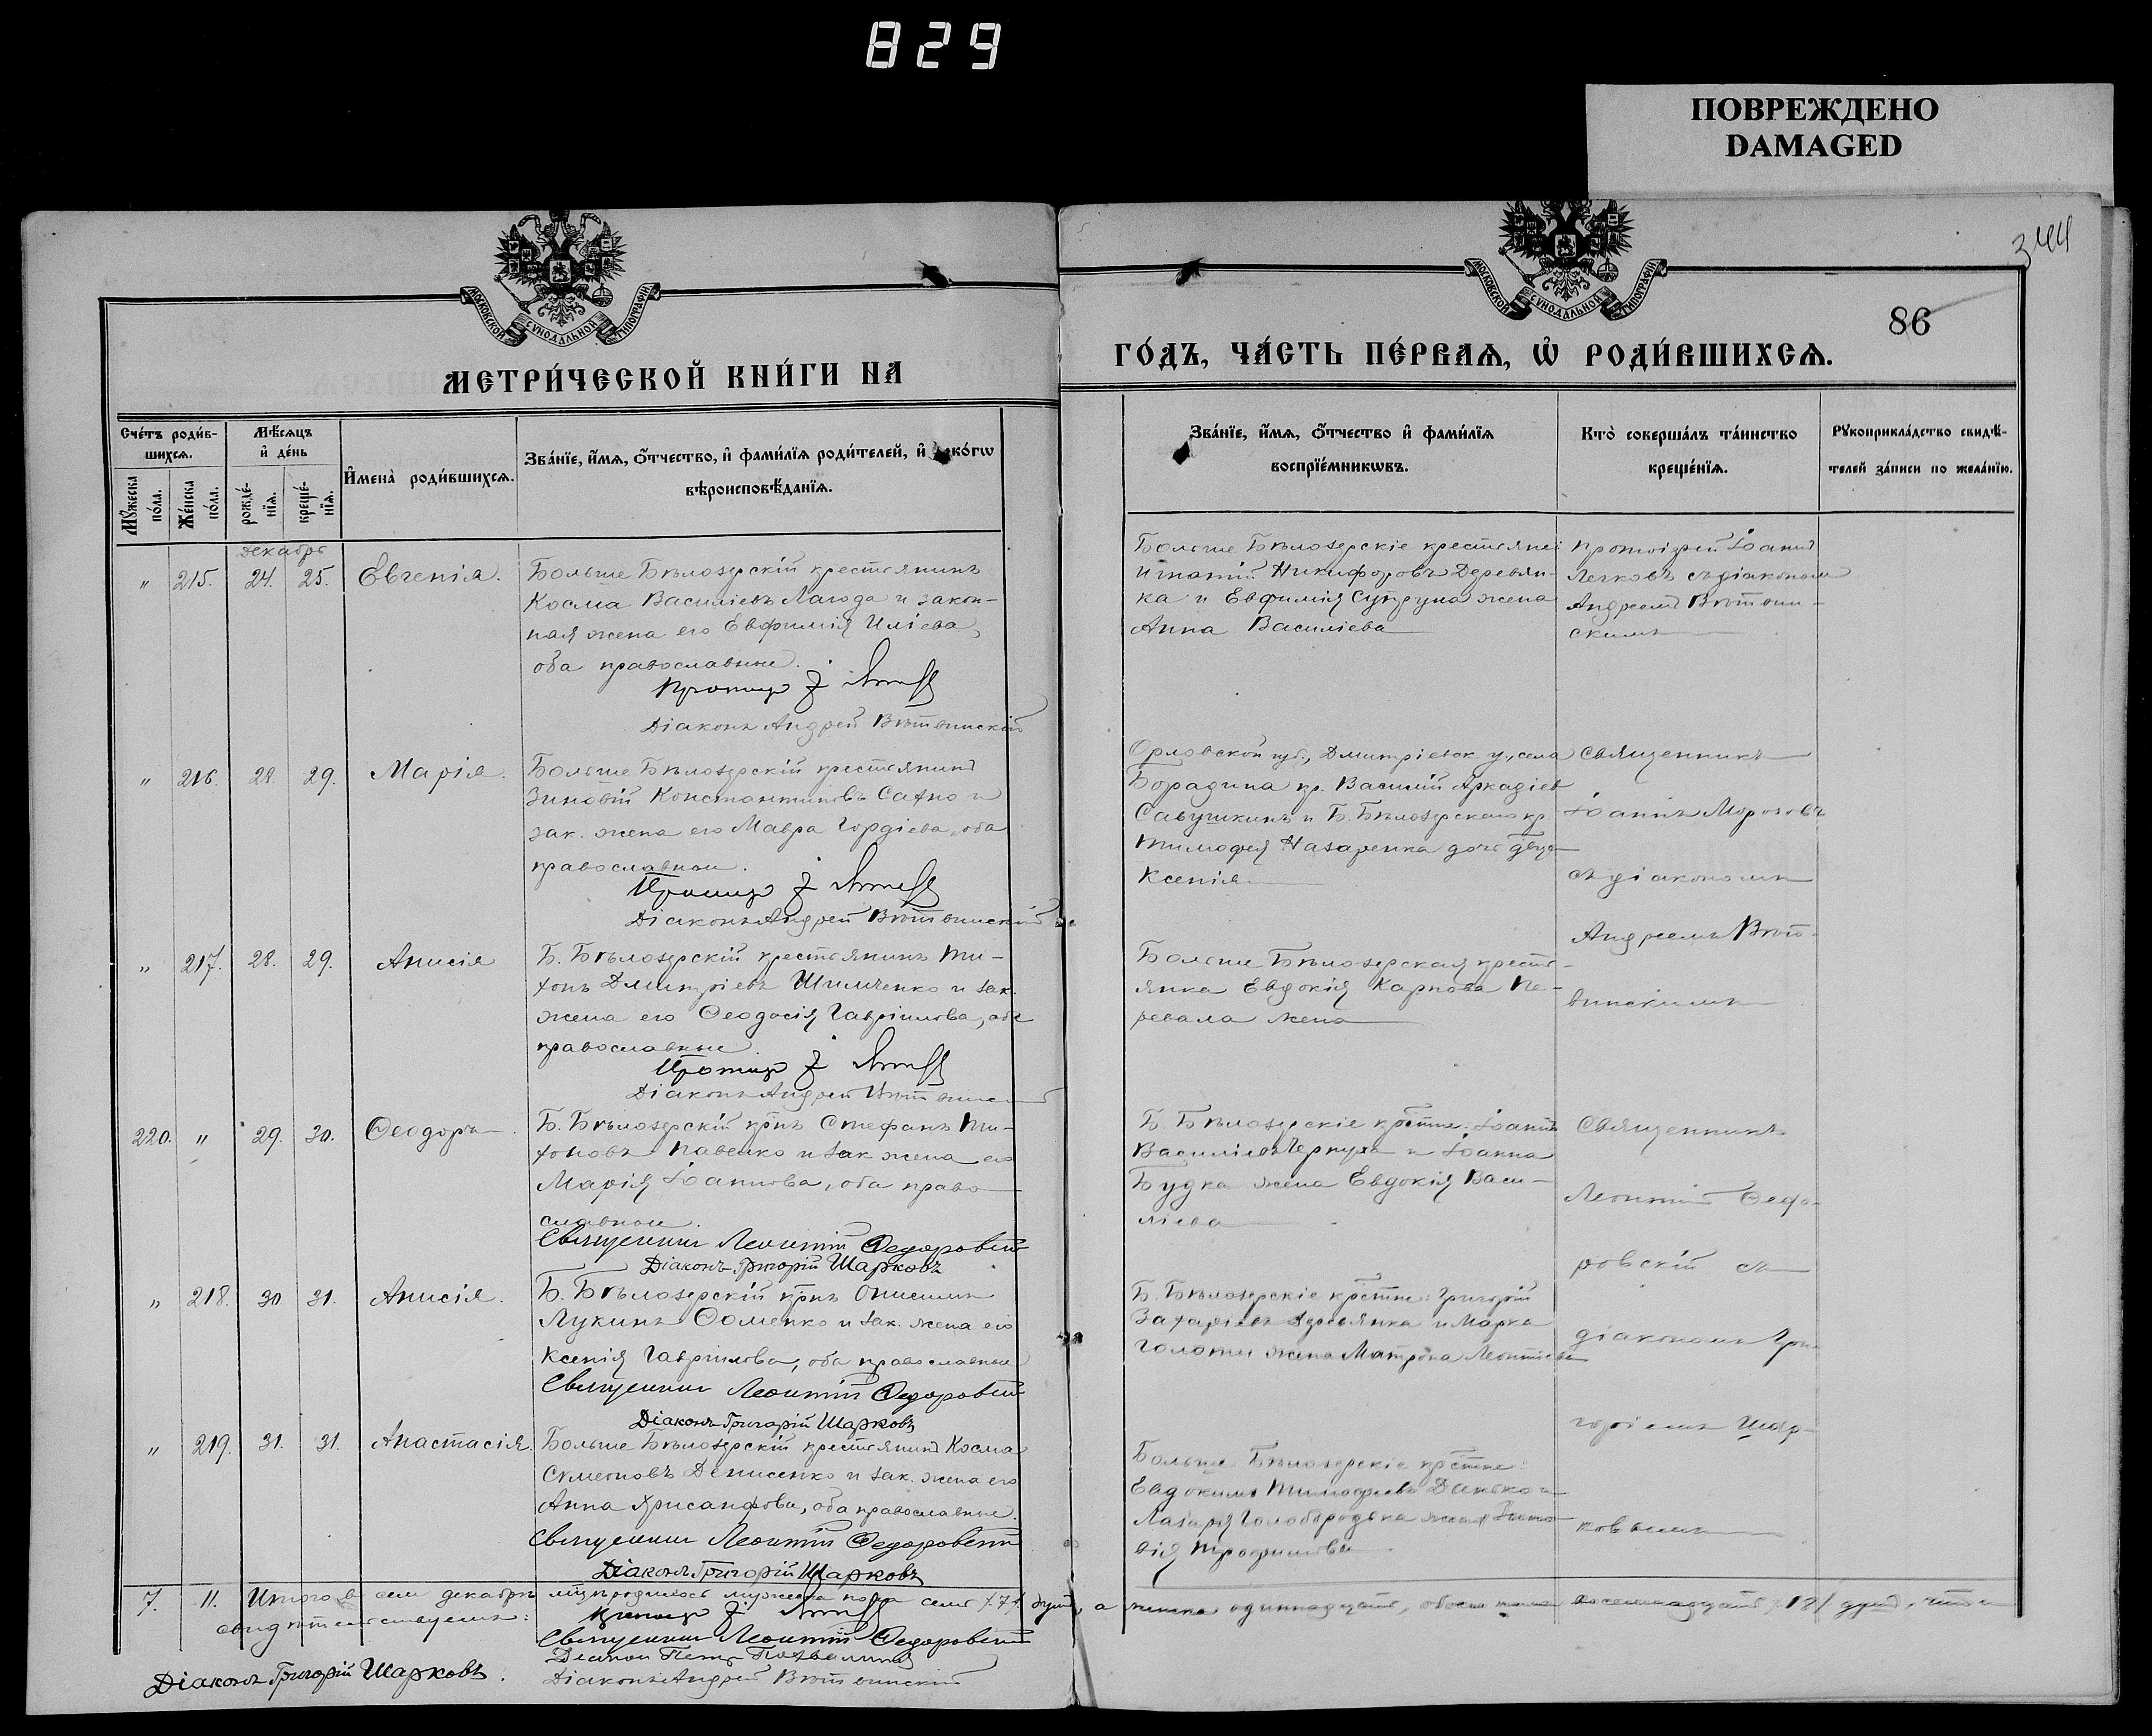 829
ПОВРЕЖДЕНО
DAMAGED
344
86
МОСКОВСКОЙ СУНОДАЛЬНОЙ ТИПОГРАФИИ
МОСКОВСКОЙ СУНОДАЛЬНОЙ ТИПОГРАФИИ
МЕТРИ́ЧЕСКОЙ КНИ́ГИ НА
ГО́ДЪ, ЧА́СТЬ ПЕ́РВАѦ, Ѡ҆ РОДИ́ВШИХСѦ.
Сче́тъ роди́в-
шихсѧ.
Мꙋ́жеска по́ла.
Же́нска по́ла.
Мѣ́сѧцъ
и҆ де́нь
рожде́-
нїѧ.
креще́-
нїѧ.
И҆мена̀ роди́вшихсѧ.
Зва́нїе, и҆́мѧ, ѻ҆́тчество, и҆ фами́лїѧ роди́телей, и҆ како́гѡ
вѣроисповѣ́данїѧ.
Зва́нїе, и҆́мѧ, ѻ҆́тчество и҆ фами́лїѧ
воспрїе́мникѡвъ.
Кто̀ соверша́лъ та́инство
креще́нїѧ.
Рꙋкоприкла́дство свидѣ́-
телей за́писи по жела́нїю.
Декабрь
" 215. 24. 25. Евгенія.
Больше Бѣлозерскій крестьянинъ
Косма Василіевъ Лагода и закон-
ная жена его Евфимія Иліева,
оба православные.
Діаконъ Андрей Вѣтвинскій
Больше Бѣлозерскіе крестьяне:
Игнатій Никифоровъ Деревян-
ка и Евфимія Супруна жена
Анна Василіева
Протоіерей Іоаннъ
Легковъ съ діакономъ
Андреемъ Вѣтвин-
скимъ
" 216. 28. 29. Марія.
Больше Бѣлозерскій крестьянинъ
Зиновій Константиновъ Сахно и
зак. жена его Мавра Гордіева, оба
православные.
Діаконъ Андрей Вѣтвинскій
Орловской губ., Дмитріевск. у., села
Бородина кр. Василій Аркадіев
Савушкинъ и Б. Бѣлозерскаго кр.
Тимофея Назаренка дочь
Ксенія
Священникъ
Іоаннъ Морозовъ
съ діакономъ
Андреемъ Вѣт-
винскимъ
" 217. 28. 29. Анисія
Б. Бѣлозерскій крестьянинъ Ти-
хонъ Дмитріевъ Шимченко и зак.
жена его Ѳеодосія Гавріилова, оба
православные.
Діаконъ Андрей Вѣтвинскій
Больше Бѣлозерская кресть-
янка Евдокія Карпова Пе-
ревала жена
220. " 29. 30. Ѳеодоръ
Б. Бѣлозерскій крнъ Стефанъ Ти-
хоновъ Павенко и зак. жена его
Марія Іоаннова, оба право-
славные.
Священникъ Леонтій Ѳедоровскій
Діаконъ Григорій Шарковъ
Б. Бѣлозерскіе крстне: Іоаннъ
Василіевъ Чернуха и Іоанна
Будка жена Евдокія Васи-
ліева
Священникъ
Леонтій Ѳедо-
ровскій съ
діакономъ Гри-
горіемъ Шар-
ковымъ
" 218. 30. 31. Анисія.
Б. Бѣлозерскій крнъ Онисимъ
Лукинъ Ѳоменко и зак. жена его
Ксенія Гавріилова, оба православные
Священникъ Леонтій Ѳедоровскій
Діаконъ Григорій Шарковъ
Б. Бѣлозерскіе крстне: Григорій
Захаріевъ Деревянка и Марка
Голоты жена Матрона Леонтіева
" 219. 31. 31. Анастасія.
Больше Бѣлозерскій крестьянинъ Косма
Симеоновъ Денисенко и зак. жена его
Анна Хрисанфова, оба православные.
Священникъ Леонтій Ѳедоровскій
Діаконъ Григорій Шарковъ
Больше Бѣлозерскіе крстне:
Евдокимъ Тимофеевъ Данько и
Лазаря Голобородька жена
Трофимова
7. 11. Итого въ сем декабрѣ мцѣ родилось мужеска пола семь /7/ душъ, а женска одиннадцать, обоего пола восемнадцать /18/ душъ, что и
свидѣтельствуемъ:
Священникъ Леонтій Ѳедоровскій
Діаконъ Григорій Шарковъ.
Діаконъ Андрей Вѣтвинскій